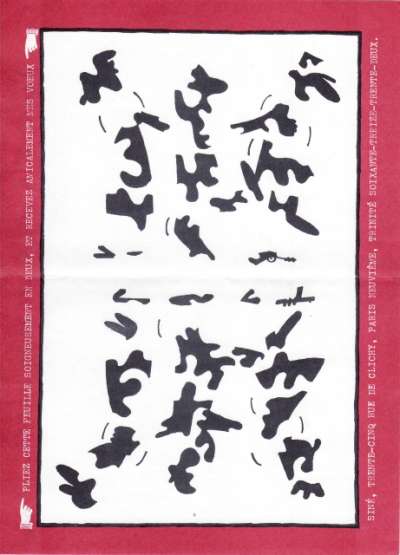 PLIEZ CETTE FEUILLE SOIGNEUSEMENT EN DEUX, ET RECEVEZ AMICALEMENT MES VOEUX
SINÉ, TRENTE-CINQ RUE DE CLICHY, PARIS NEUVIÈME, TRINITÉ SOIXANTE-TREIZE-TRENTE-DEUX.